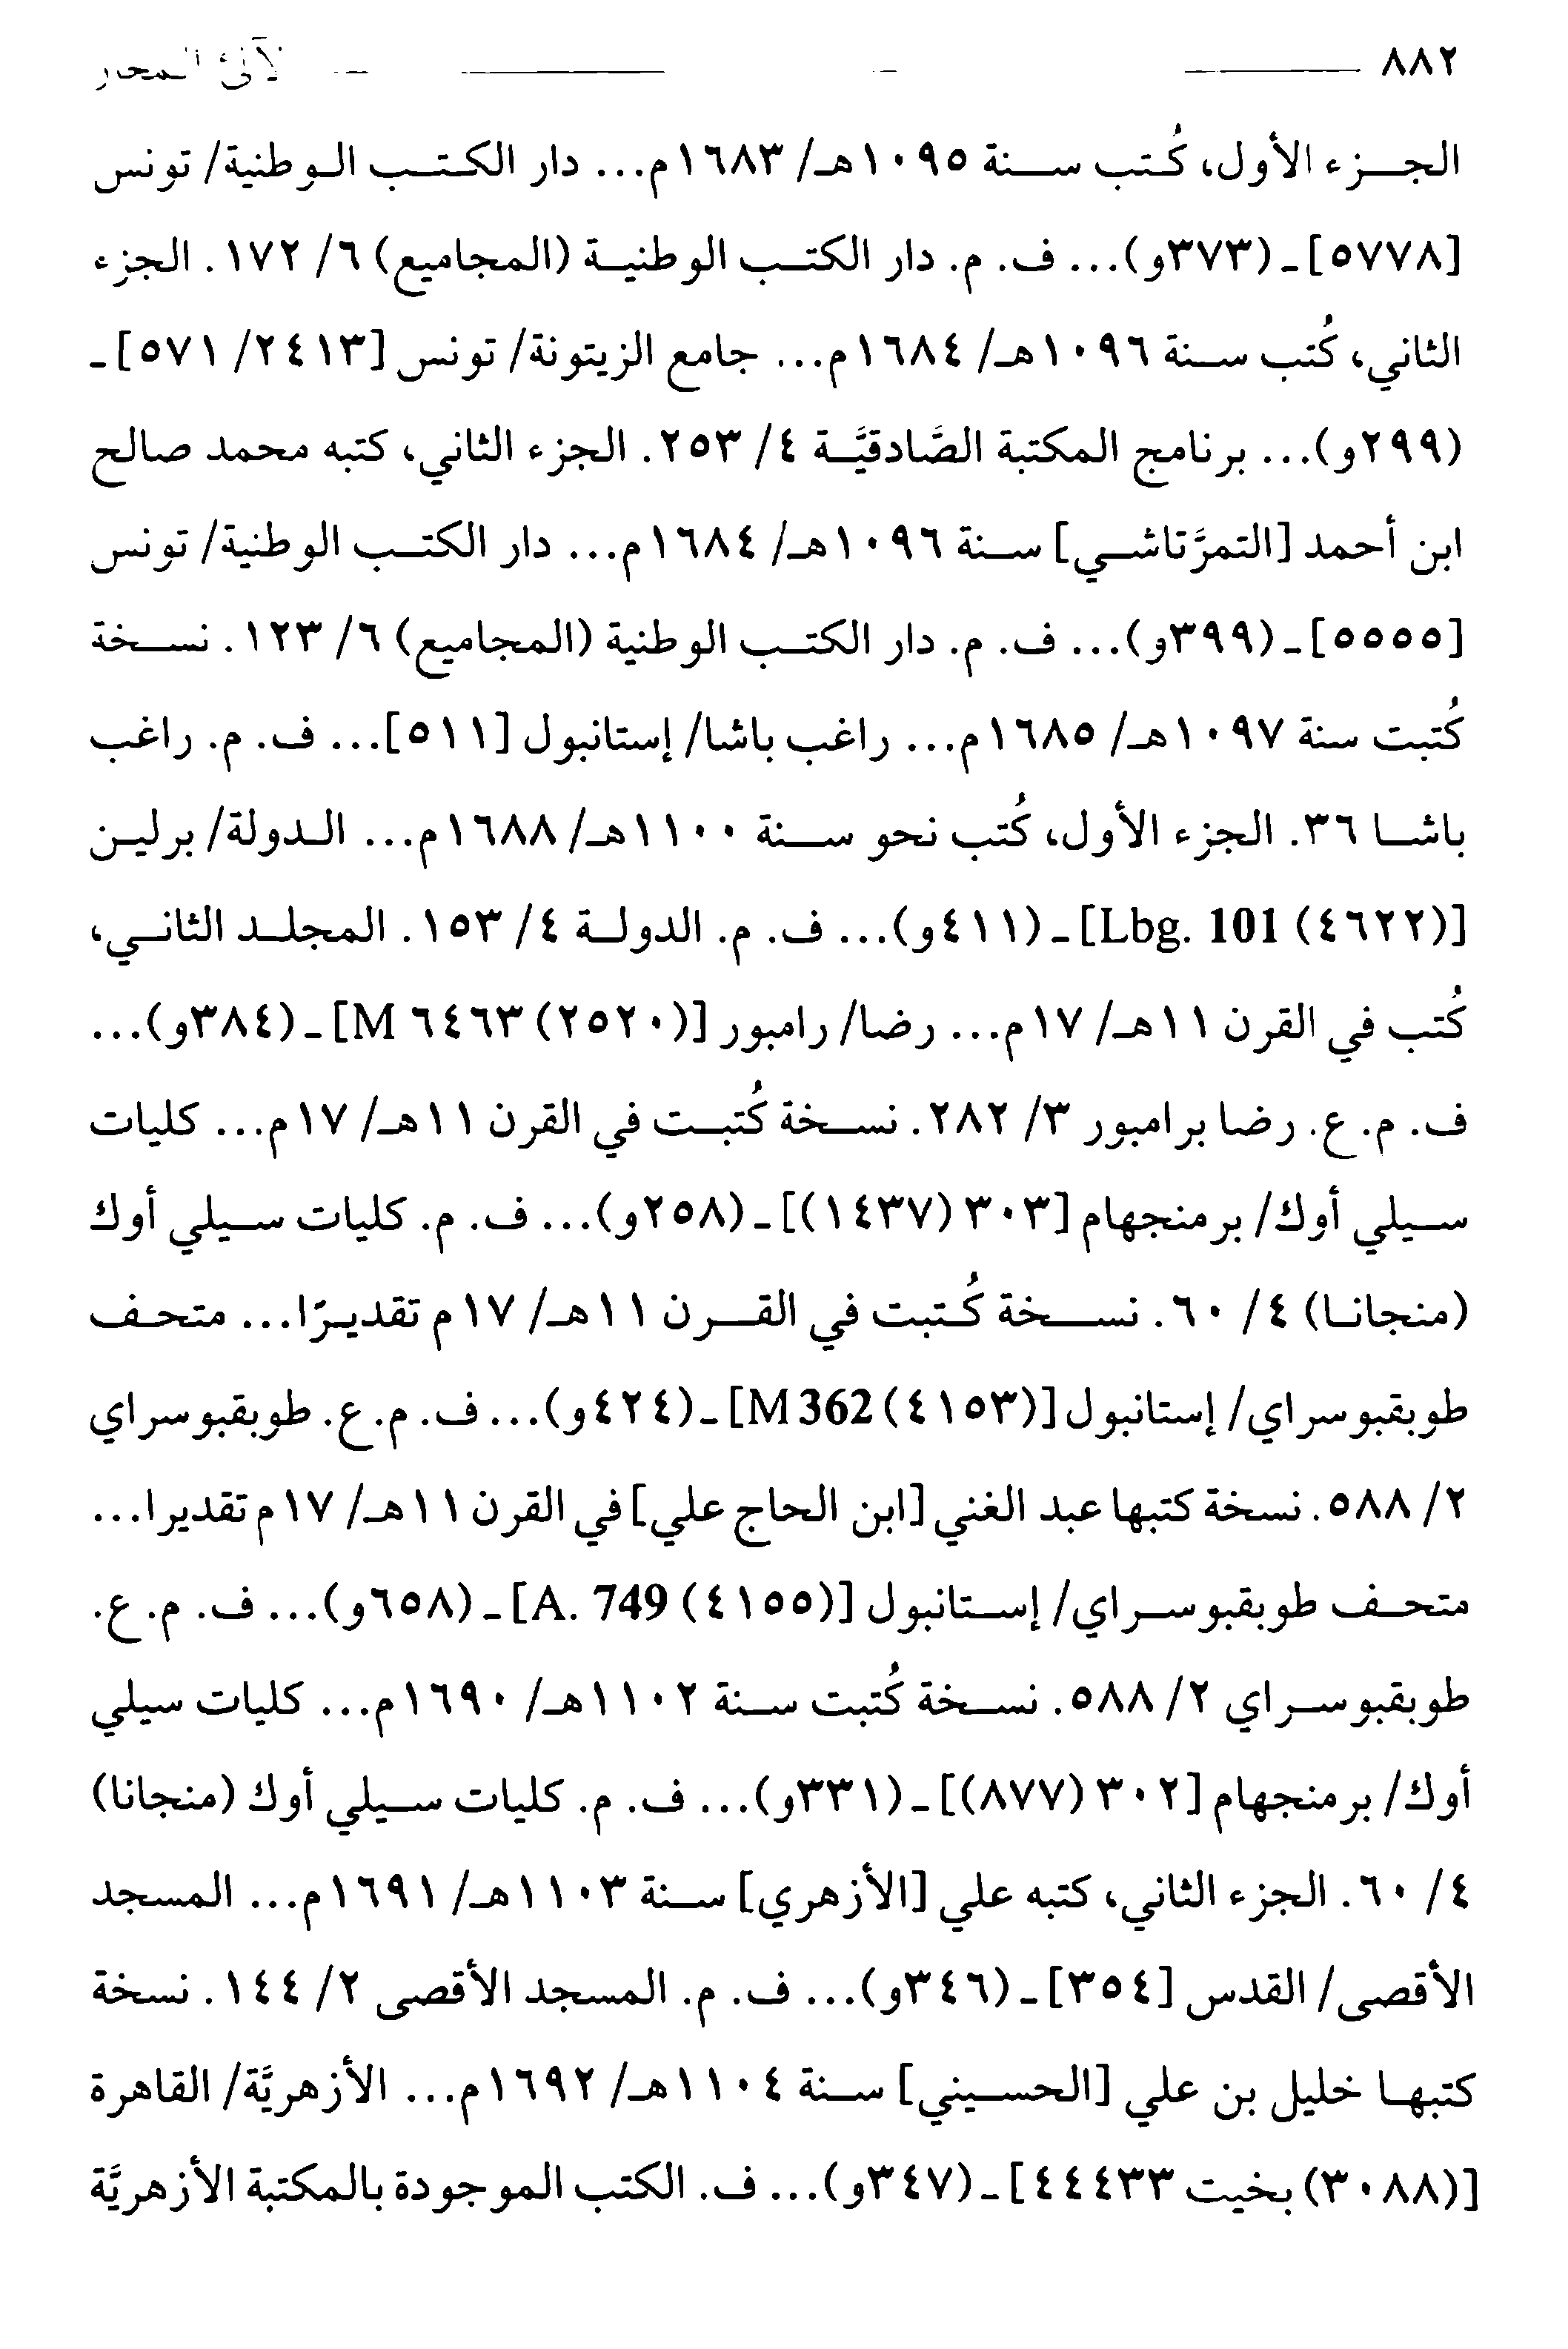 ٨٨٢ لآلئ المحار
الجزء الأول، كُتب سنة ١٠٩٥هـ/ ١٦٨٣م... دار الكتب الوطنية/ تونس
[٥٧٧٨] ـ (٣٧٣و)... ف. م. دار الكتب الوطنية (المجاميع) ٦/ ١٧٢. الجزء
الثاني، كُتب سنة ١٠٩٦هـ/ ١٦٨٤م... جامع الزيتونة/ تونس [٢٤١٣/ ٥٧١] ـ
(٢٩٩و)... برنامج المكتبة الصَّادقيَّة ٤/ ٢٥٣. الجزء الثاني، كتبه محمد صالح
ابن أحمد [التمرَّتاشي] سنة ١٠٩٦هـ/ ١٦٨٤م... دار الكتب الوطنية/ تونس
[٥٥٥٥] ـ (٣٩٩و)... ف. م. دار الكتب الوطنية (المجاميع) ٦/ ١٢٣. نسخة
كُتبت سنة ١٠٩٧هـ/ ١٦٨٥م... راغب باشا/ إستانبول [٥١١]... ف. م. راغب
باشا ٣٦. الجزء الأول، كُتب نحو سنة ١١٠٠هـ/ ١٦٨٨م... الدولة/ برلين
[(٤٦٢٢) Lbg. 101] ـ (٤١١و)... ف. م. الدولة ٤/ ١٥٣. المجلد الثاني،
كُتب في القرن ١١هـ/ ١٧م... رضا/ رامبور [(٢٥٢٠) ٦٤٦٣ M] ـ (٣٨٤و)...
ف. م. ع. رضا برامبور ٣/ ٢٨٢. نسخة كُتبت في القرن ١١هـ/ ١٧م... كليات
سيلي أوك/ برمنجهام [٣٠٣ (١٤٣٧)] ـ (٢٥٨و)... ف. م. كليات سيلي أوك
(منجانا) ٤/ ٦٠. نسخة كُتبت في القرن ١١هـ/ ١٧م تقديرًا... متحف
طوبقبوسراي/ إستانبول [(٤١٥٣) M 362] ـ (٤٢٤و)... ف. م. ع. طوبقبوسراي
٢/ ٥٨٨. نسخة كتبها عبد الغني [ابن الحاج علي] في القرن ١١هـ/ ١٧م تقديرا...
متحف طوبقبوسراي/ إستانبول [(٤١٥٥) A. 749] ـ (٦٥٨و)... ف. م. ع.
طوبقبوسراي ٢/ ٥٨٨. نسخة كُتبت سنة ١١٠٢هـ/ ١٦٩٠م... كليات سيلي
أوك/ برمنجهام [٣٠٢ (٨٧٧)] ـ (٣٣١و)... ف. م. كليات سيلي أوك (منجانا)
٤/ ٦٠. الجزء الثاني، كتبه علي [الأزهري] سنة ١١٠٣هـ/ ١٦٩١م... المسجد
الأقصى/ القدس [٣٥٤] ـ (٣٤٦و)... ف. م. المسجد الأقصى ٢/ ١٤٤. نسخة
كتبها خليل بن علي [الحسيني] سنة ١١٠٤هـ/ ١٦٩٢م... الأزهريَّة/ القاهرة
[(٣٠٨٨) بخيت ٤٤٤٣٣] ـ (٣٤٧و)... ف. الكتب الموجودة بالمكتبة الأزهريَّة